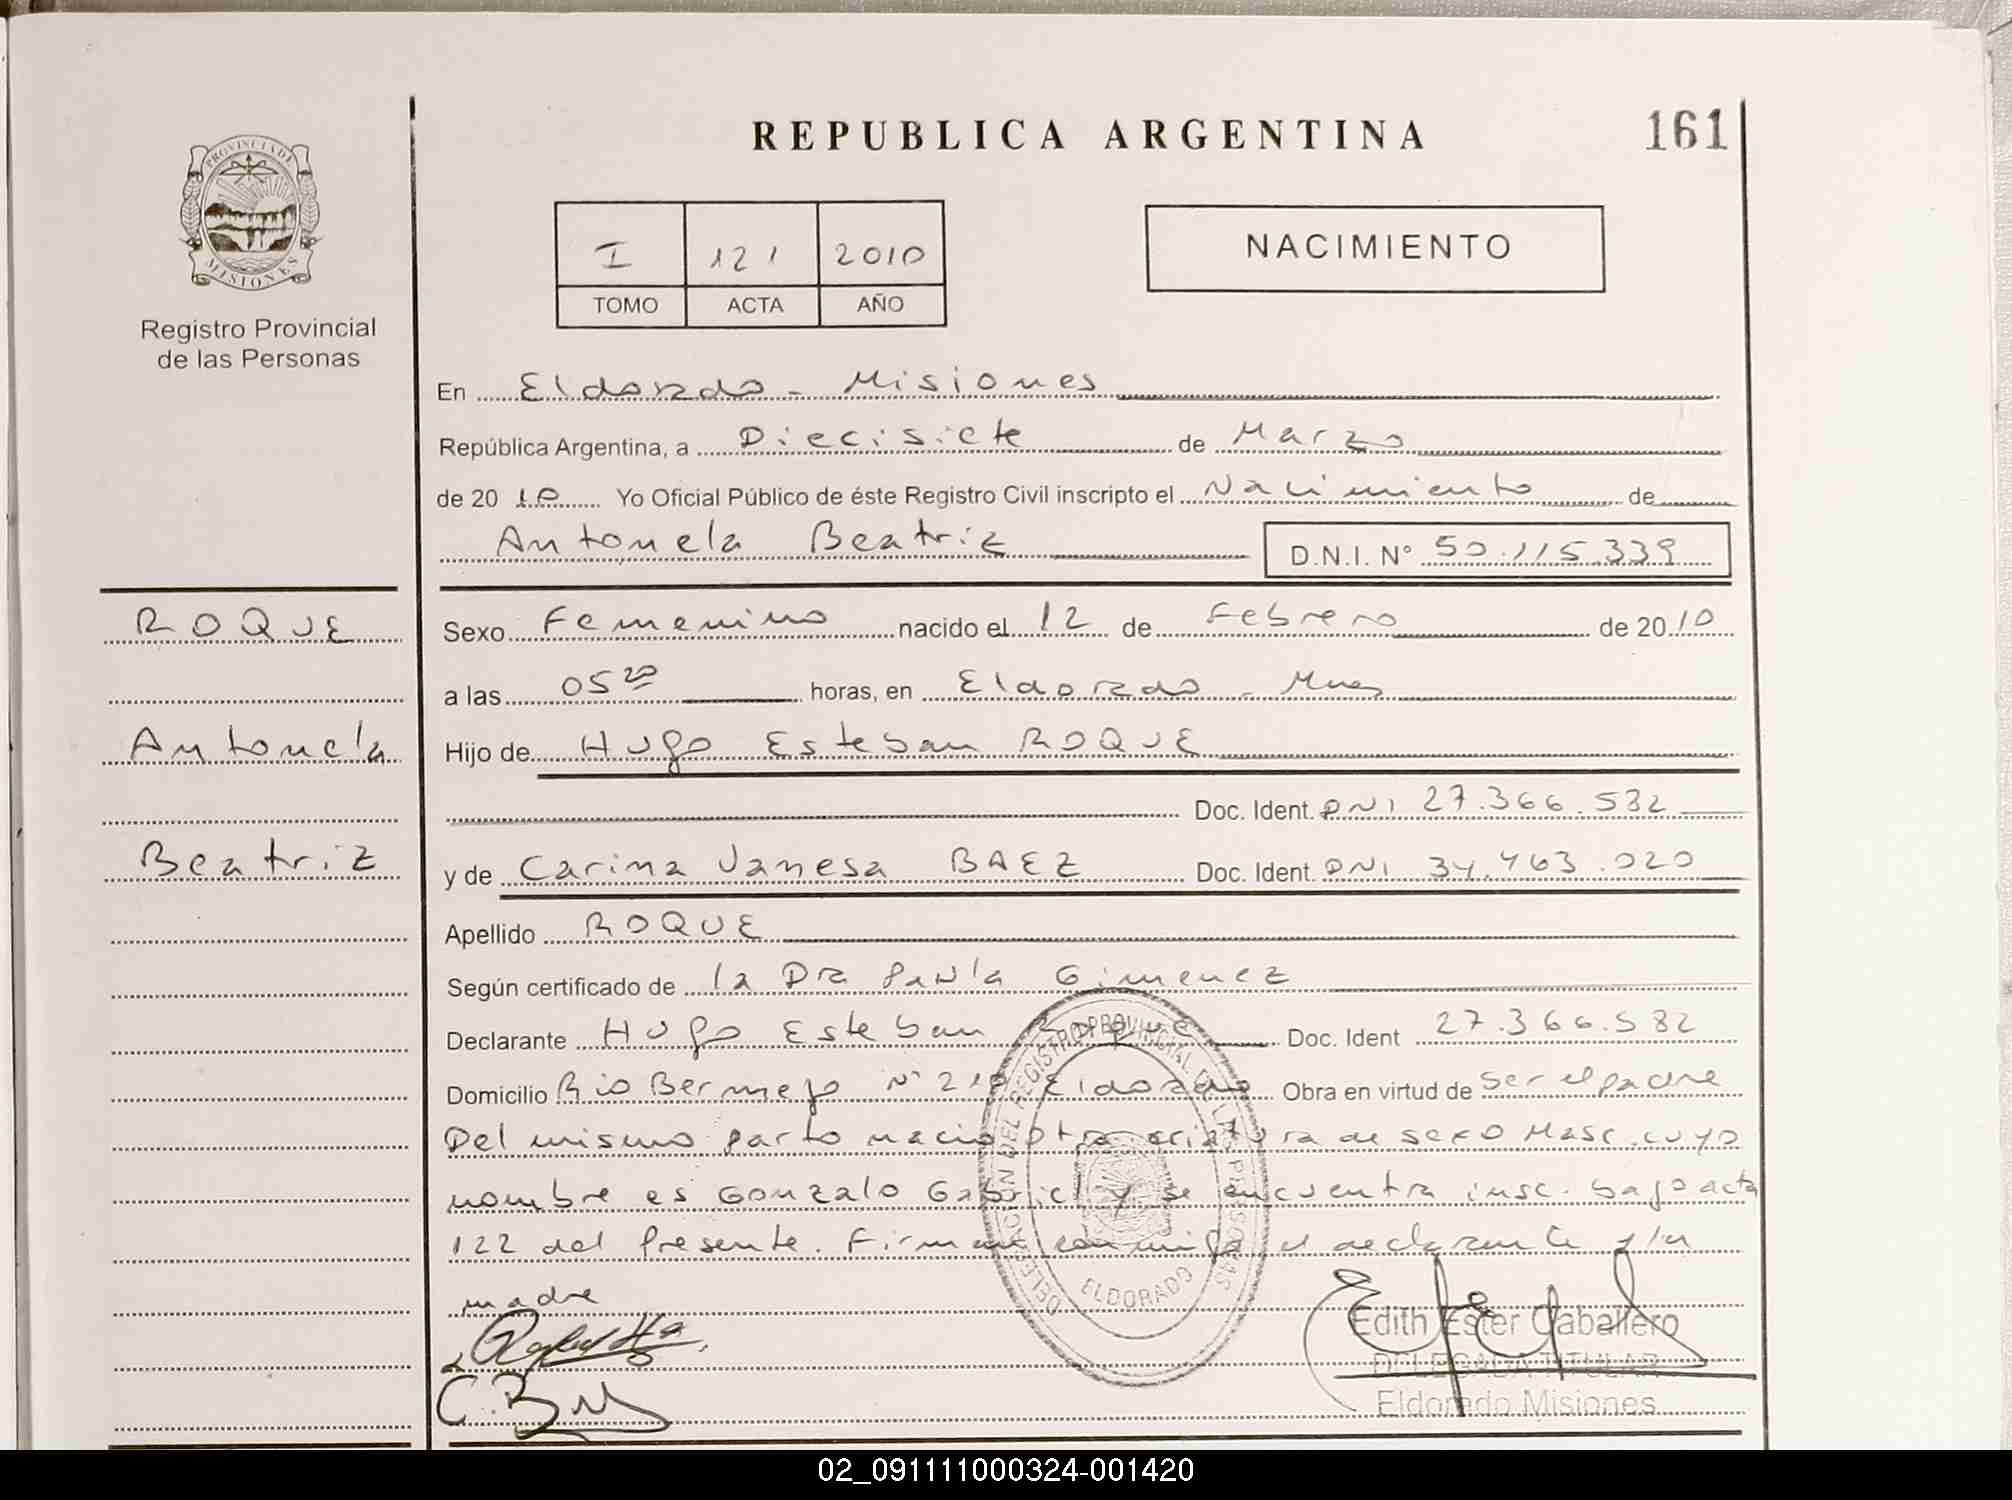 REPUBLICA ARGENTINA
161
PROVINCIA DE
MISIONES
Registro Provincial
de las Personas
I 121 2010
TOMO ACTA AÑO
NACIMIENTO
En Eldorado - Misiones
República Argentina, a Diecisiete de Marzo
de 20 10 Yo Oficial Público de éste Registro Civil inscripto el Nacimiento de
Antonela Beatriz D.N.I. N° 50.115.339
ROQUE
Antonela
Beatriz
Sexo Femenino nacido el 12 de Febrero de 20 10
a las 05 20 horas, en Eldorado - Mnes
Hijo de Hugo Esteban ROQUE
Doc. Ident. DNI 27.366.532
y de Carina Vanesa BAEZ Doc. Ident. DNI 34.463.020
Apellido ROQUE
Según certificado de la Dra Paula Gimenez
Declarante Hugo Esteban Roque Doc. Ident 27.366.532
Domicilio Rio Bermejo N° 210 Eldorado Obra en virtud de ser el padre
Del mismo parto nacio otra criatura de sexo Masc. cuyo
nombre es Gonzalo Gabriel y se encuentra insc. bajo acta
122 del presente. Firman conmigo el declarante y la
madre
DELEGACION DEL REGISTRO PROVINCIAL DE LAS PERSONAS
ELDORADO
C. B
Edith Ester Caballero
DELEGADA TITULAR
Eldorado Misiones
02_091111000324-001420